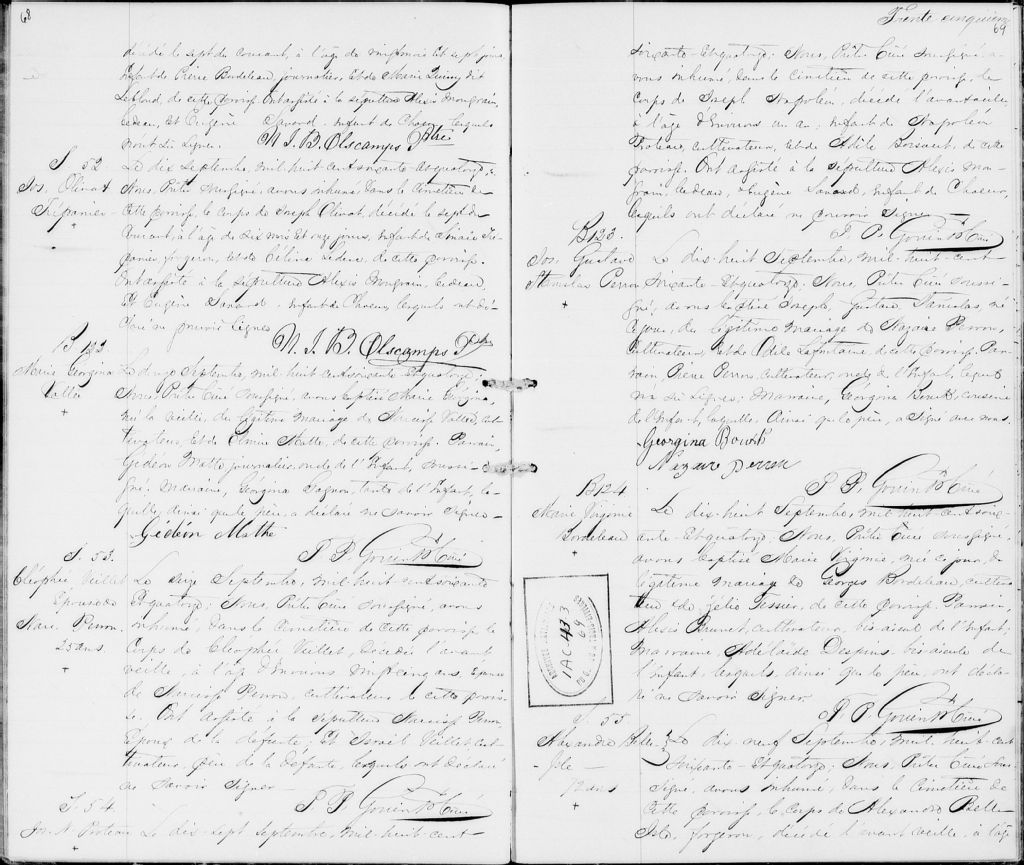 68
décédé le sept du courant, à l'âge de huit mois et sept jours
Enfant de Pierre Bordeleau, journalier, et de Marie Quincy dit
de cette paroisse. Ont assisté à la sépulture Alexis Mongrain,
bedeau, et Eugène enfant de Choeur, lesquels
n'ont su signer. N. J. B. Olscamps Ptre
S. 52
Jos. Olivat
Trépanier
+
Le dix Septembre, mil huit cent soixante et quatorze,
Nous, Prêtre soussigné, avons inhumé, dans le Cimetière de
cette paroisse, le corps de Joseph Olivat, décédé le sept du
courant, à l'âge de dix mois et onze jours, enfant de
Trépanier, forgeron, et de Céline de cette paroisse.
Ont assisté à la sépulture Alexis Mongrain, bedeau,
et Eugène enfant de Choeur, lesquels ont dé-
claré ne pouvoir signer.
N. J. B. Olscamps Ptre
Marie Georgina
Vallée
+
Le Septembre, mil huit cent soixante et quatorze,
Nous, Prêtre Curé soussigné, avons baptisé Marie Georgina,
née la veille, du légitime mariage de Narcisse Vallée, cul-
tivateur, et de Matte, de cette paroisse. Parrain,
Gédéon Matte, journalier, oncle de l'Enfant, soussi-
gné. Marraine, Georgina Gagnon, tante de l'Enfant, la-
quelle, ainsi que le père, a déclaré ne savoir signer.
Gédéin Mathe
T. P. Gouin Ptre Curé
S. 53.
Cléophée Veillet
Épouse de
Narc. Perron.
25 ans
+
Le seize Septembre, mil huit cent soixante
et quatorze, Nous, Prêtre Curé soussigné, avons
inhumé, dans le cimetière de cette paroisse le
Corps de Cléophée Veillet, décédée l'avant
veille, à l'âge d'environ vingt cinq ans, Épouse
de Narcisse Perron, cultivateur, de cette parois-
se. Ont assisté à la sépulture Narcisse Perron
Époux de la défunte, et Israël Veillet, cul-
tivateur, père de la défunte, lesquels ont déclaré
ne savoir signer
T. P. Gouin Ptre Curé
S. 54
Jos. N. Proteau
+
Le dix-sept Septembre, mil huit-cent
Trente cinquième
69
soixante-et-quatorze, Nous, Prêtre Curé soussigné, a-
vons inhumé, dans le Cimetière de cette paroisse, le
Corps de Joseph Napoléon, décédé l'avant veille
à l'âge d'environ un an, enfant de Napoléon
Proteau, cultivateur, et de Adèle de cette
paroisse. Ont assisté à la sépulture Alexis Mon-
grain, bedeau, Eugène enfant de Choeur,
lesquels ont déclaré ne pouvoir signer
T. P. Gouin Ptre Curé
B 123.
Jos. Gustave
Stanislas Perron
+
Le dix-huit Septembre, mil-huit-cent
soixante-et-quatorze, Nous, Prêtre Curé soussi-
gné, avons baptisé Joseph, Gustave, Stanislas, né
ce jour, du légitime mariage de Nazaire Perron,
Cultivateur, et de Odile Lafontaine, de cette paroisse. Par-
rain, Pierre Perron, cultivateur, oncle de l'Enfant, lequel
n'a su signer; Marraine, Georgina cousine
de l'Enfant, laquelle, ainsi que le père, a signé avec nous.
Georgina
Nazaire perron
T. P. Gouin Ptre Curé
B124
Marie Virginie
Bordeleau
+
Le dix-huit Septembre, mil huit cent soix-
ante-et-quatorze, Nous, Prêtre Curé soussigné,
avons baptisé Marie Virginie, née ce jour, du
légitime mariage de Georges Bordeleau, cultiva-
teur et de Tessier, de cette paroisse. Parrain,
Alexis Brunet, cultivateur, bisaïeul de l'Enfant;
Marraine, Adélaïde Despins, bisaïeule de
l'Enfant, lesquels, ainsi que le père, ont décla-
ré ne savoir signer.
T. P. Gouin Ptre Curé
1AC-43
69
S. 55
Alexandre Belle-
Isle
72 ans
+
Le dix-neuf Septembre, mil huit-cent
soixante-et-quatorze, Nous, Prêtre Curé sous-
signé, avons inhumé, dans le cimetière de
cette paroisse, le Corps de Alexandre Belle-
Isle, forgeron, décédé l'avant veille, à l'âge